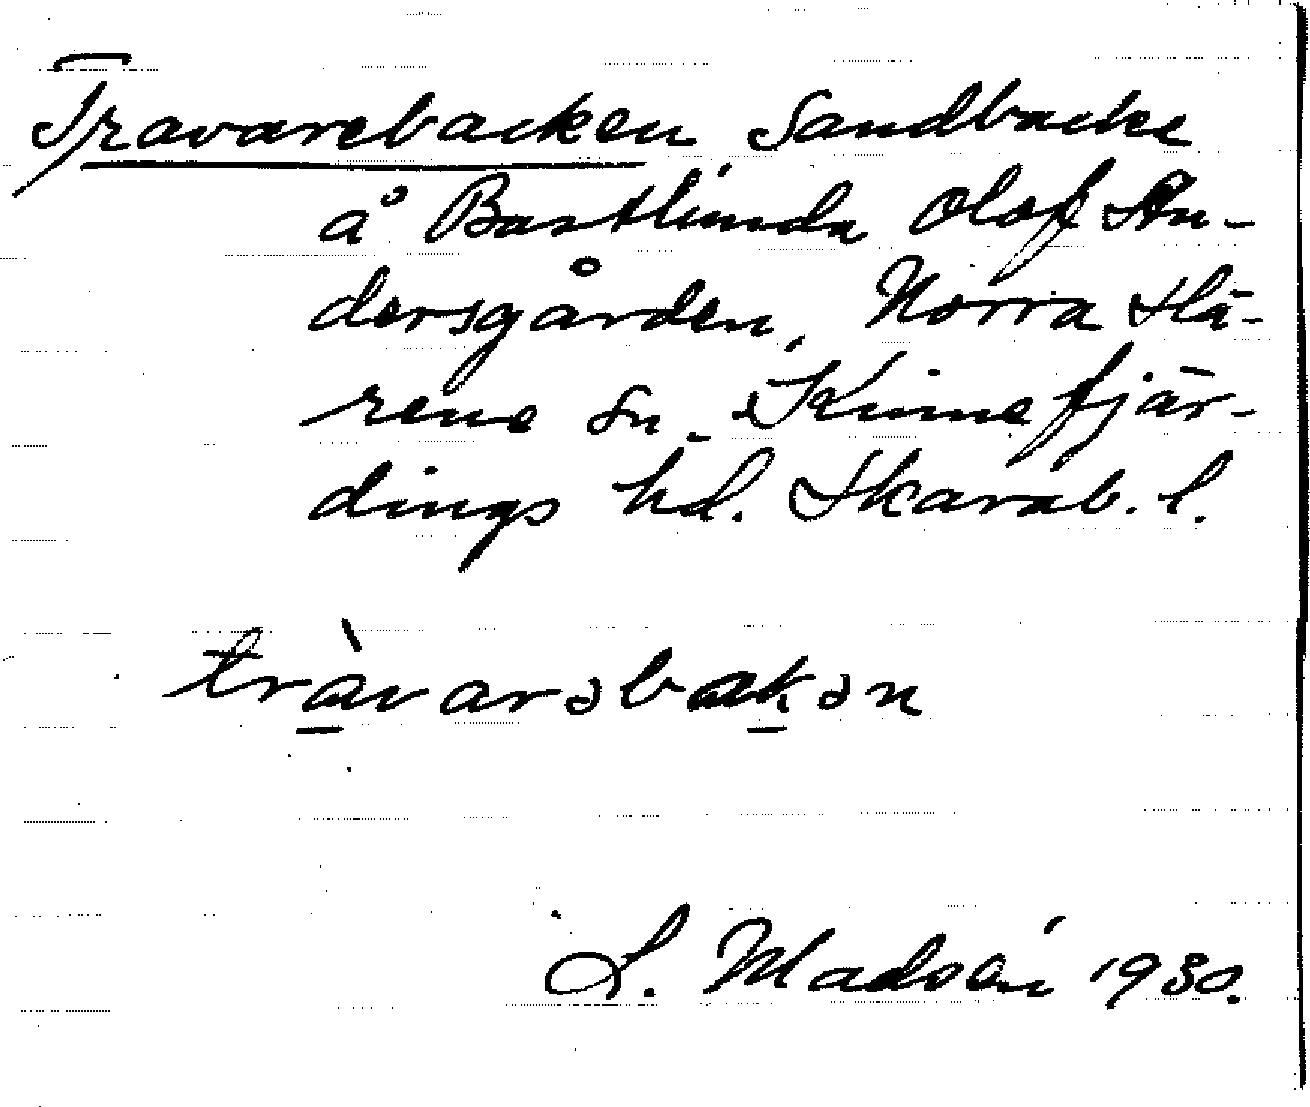 Travarebacken, Sandbacke
å Bastlunda Olof An-
dersgården, Norra Hä-
rene sn. Kinnefjär-
dings hd. Skarab. l.
tràvarəbakən
S. Madsén 1930.